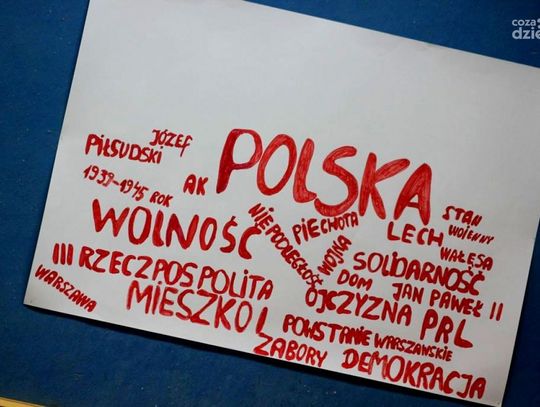 JÓZEF
PIŁSUDSKI
1939-1945 ROK
AK
POLSKA
WOLNOŚĆ
NIEPODLEGŁOŚĆ
PIECHOTA
WOJNA
STAN
WOJENNY
LECH
WAŁĘSA
SOLIDARNOŚĆ
III RZECZPOSPOLITA
DOM
JAN PAWEŁ II
WARSZAWA
MIESZKO I
OJCZYZNA
PRL
POWSTANIE WARSZAWSKIE
ZABORY
DEMOKRACJA